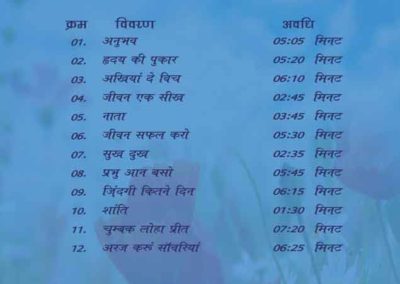 क्रम विवरण अवधि
01. अनुभव 05:05 मिनट
02. हृदय की पुकार 05:20 मिनट
03. अखियां दे बिच 06:10 मिनट
04. जीवन एक सीख 02:45 मिनट
05. नाता 03:45 मिनट
06. जीवन सफल करो 05:30 मिनट
07. सुख दुख 02:35 मिनट
08. प्रभु आन बसो 05:45 मिनट
09. ज़िंदगी कितने दिन 06:15 मिनट
10. शांति 01:30 मिनट
11. चुम्बक लोहा प्रीत 07:20 मिनट
12. अरज करूं साँवरियां 06:25 मिनट